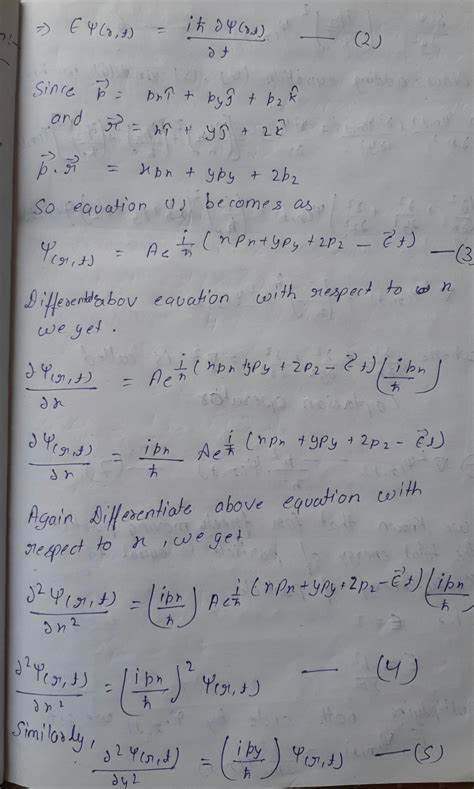 ⇒ Eψ(r,t) = iħ ∂ψ(r,t)/∂t — (2)
Since p⃗ = pxî + pyĵ + pzk̂
and r⃗ = xî + yĵ + zk̂
p⃗·r⃗ = xpx + ypy + zpz
So equation (1) becomes as
ψ(r,t) = Ae^{i/ħ (xpx+ypy+zpz − Et)} — (3)
Differentiate abov equation with respect to x
we get.
∂ψ(r,t)/∂x = Ae^{i/ħ (xpx+ypy+zpz − Et)} (ipx/ħ)
∂ψ(r,t)/∂x = ipx/ħ Ae^{i/ħ (xpx+ypy+zpz − Et)}
Again Differentiate above equation with
respect to x, we get
∂²ψ(r,t)/∂x² = (ipx/ħ) Ae^{i/ħ (xpx+ypy+zpz−Et)} (ipx/ħ)
∂²ψ(r,t)/∂x² = (ipx/ħ)² ψ(r,t) — (4)
Similarly,
∂²ψ(r,t)/∂y² = (ipy/ħ) ψ(r,t) — (5)